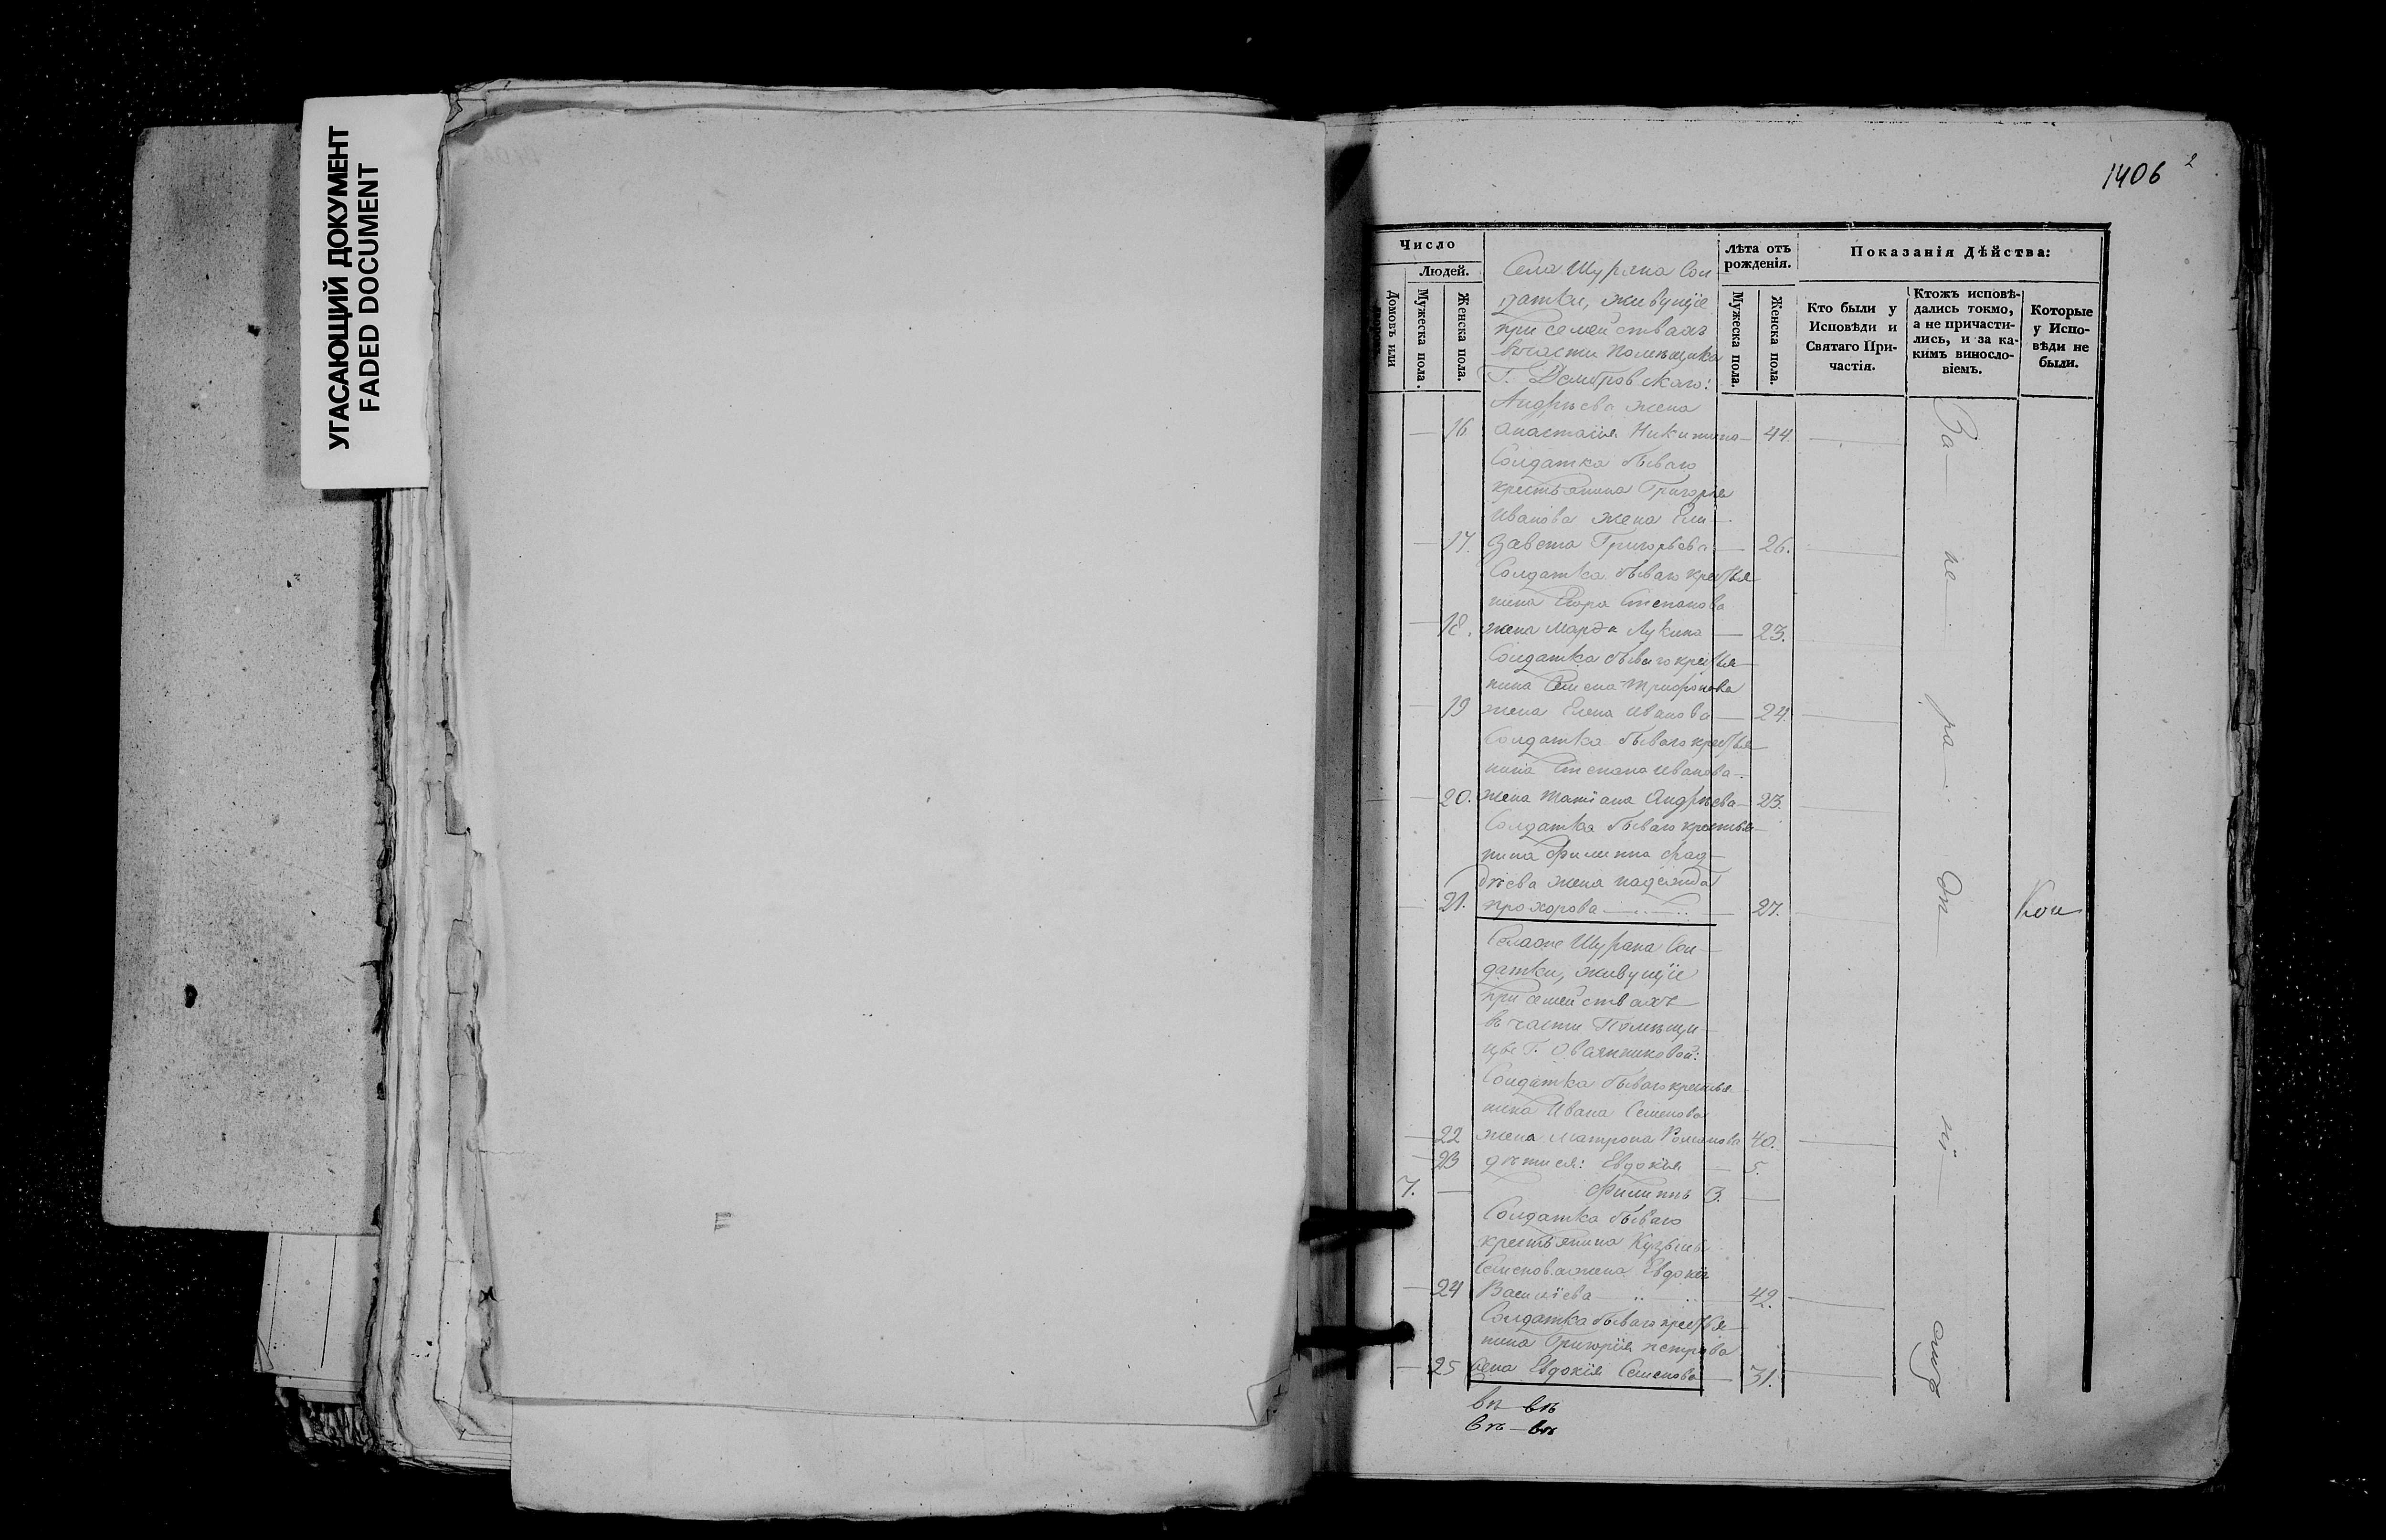 УГАСАЮЩИЙ ДОКУМЕНТ
FADED DOCUMENT
1406
2
Число
Людей.
Домовъ или
Мужеска пола.
Женска пола.
Лѣта отъ
рожденія.
Мужеска пола.
Женска пола.
Показанія Дѣйства:
Кто были у
Исповѣди и
Святаго При-
частія.
Ктожъ исповѣ-
дались токмо,
а не причасти-
лись, и за ка-
кимъ винosло-
віемъ.
Которые
у Испо-
вѣди не
были.
Села Шурана Сол
датки, живущіе
при семействахъ
въ части Помѣщика
Г.
Андрѣева жена
16 Анастасія Никитина 44.
Солдатка бываго
крестьянина Григорья
Иванова жена Ели-
17. завета Григорьева 26.
Солдатка бываго крестья
нина Егора Степанова
18. жена Марѳа Лукина 23.
Солдатка бываго крестья
нина Семена Трифонова
19 жена Елена Иванова 24.
Солдатка бываго крестья
нина Степана Иванова
20. жена Татіана Андрѣева 23.
Солдатка бываго крестья
нина Филиппа Фад-
дѣева жена Надежда
21. Прохорова 27.
Тогоже Шурана Сол-
датки, живущіе
при семействахъ
въ части Помѣщи-
цы Г.
Солдатка бываго крестья
нина Ивана Семенова
22 жена Матрона Романова 40.
23 дѣти ея: Евдокія 5.
7. Филиппъ 3.
Солдатка бываго
крестьянина Кузьмы
Семенова жена Евдокія
24 Василіева 42.
Солдатка бываго крестья
нина Григорія Петрова
25 жена Евдокія Семенова 31.
За
не
ра
Кои